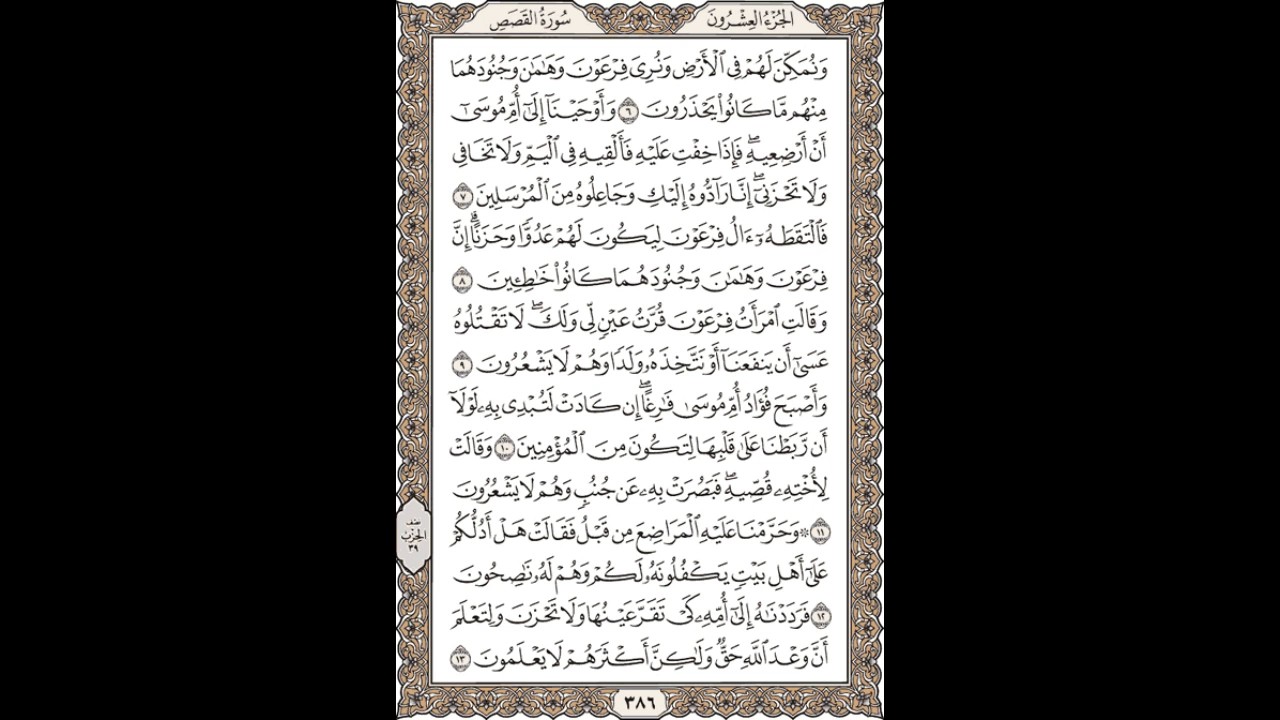 الجُزْءُ العِشْرُونَ
سُورَةُ القَصَصِ
وَنُمَكِّنَ لَهُمْ فِي ٱلْأَرْضِ وَنُرِىَ فِرْعَوْنَ وَهَٰمَٰنَ وَجُنُودَهُمَا
مِنْهُم مَّا كَانُوا۟ يَحْذَرُونَ ٦ وَأَوْحَيْنَآ إِلَىٰٓ أُمِّ مُوسَىٰٓ
أَنْ أَرْضِعِيهِ ۖ فَإِذَا خِفْتِ عَلَيْهِ فَأَلْقِيهِ فِي ٱلْيَمِّ وَلَا تَخَافِي
وَلَا تَحْزَنِىٓ ۖ إِنَّا رَآدُّوهُ إِلَيْكِ وَجَاعِلُوهُ مِنَ ٱلْمُرْسَلِينَ ٧
فَٱلْتَقَطَهُۥٓ ءَالُ فِرْعَوْنَ لِيَكُونَ لَهُمْ عَدُوًّا وَحَزَنًا ۗ إِنَّ
فِرْعَوْنَ وَهَٰمَٰنَ وَجُنُودَهُمَا كَانُوا۟ خَٰطِـِٔينَ ٨
وَقَالَتِ ٱمْرَأَتُ فِرْعَوْنَ قُرَّتُ عَيْنٍ لِّى وَلَكَ ۖ لَا تَقْتُلُوهُ
عَسَىٰٓ أَن يَنفَعَنَآ أَوْ نَتَّخِذَهُۥ وَلَدًا وَهُمْ لَا يَشْعُرُونَ ٩
وَأَصْبَحَ فُؤَادُ أُمِّ مُوسَىٰ فَٰرِغًا ۖ إِن كَادَتْ لَتُبْدِى بِهِۦ لَوْلَآ
أَن رَّبَطْنَا عَلَىٰ قَلْبِهَا لِتَكُونَ مِنَ ٱلْمُؤْمِنِينَ ١٠ وَقَالَتْ
لِأُخْتِهِۦ قُصِّيهِ ۖ فَبَصُرَتْ بِهِۦ عَن جُنُبٍ وَهُمْ لَا يَشْعُرُونَ
١١ ۞ وَحَرَّمْنَا عَلَيْهِ ٱلْمَرَاضِعَ مِن قَبْلُ فَقَالَتْ هَلْ أَدُلُّكُمْ
عَلَىٰٓ أَهْلِ بَيْتٍ يَكْفُلُونَهُۥ لَكُمْ وَهُمْ لَهُۥ نَٰصِحُونَ
١٢ فَرَدَدْنَٰهُ إِلَىٰٓ أُمِّهِۦ كَىْ تَقَرَّ عَيْنُهَا وَلَا تَحْزَنَ وَلِتَعْلَمَ
أَنَّ وَعْدَ ٱللَّهِ حَقٌّ وَلَٰكِنَّ أَكْثَرَهُمْ لَا يَعْلَمُونَ ١٣
نصف
الحِزْب
٣٩
٣٨٦